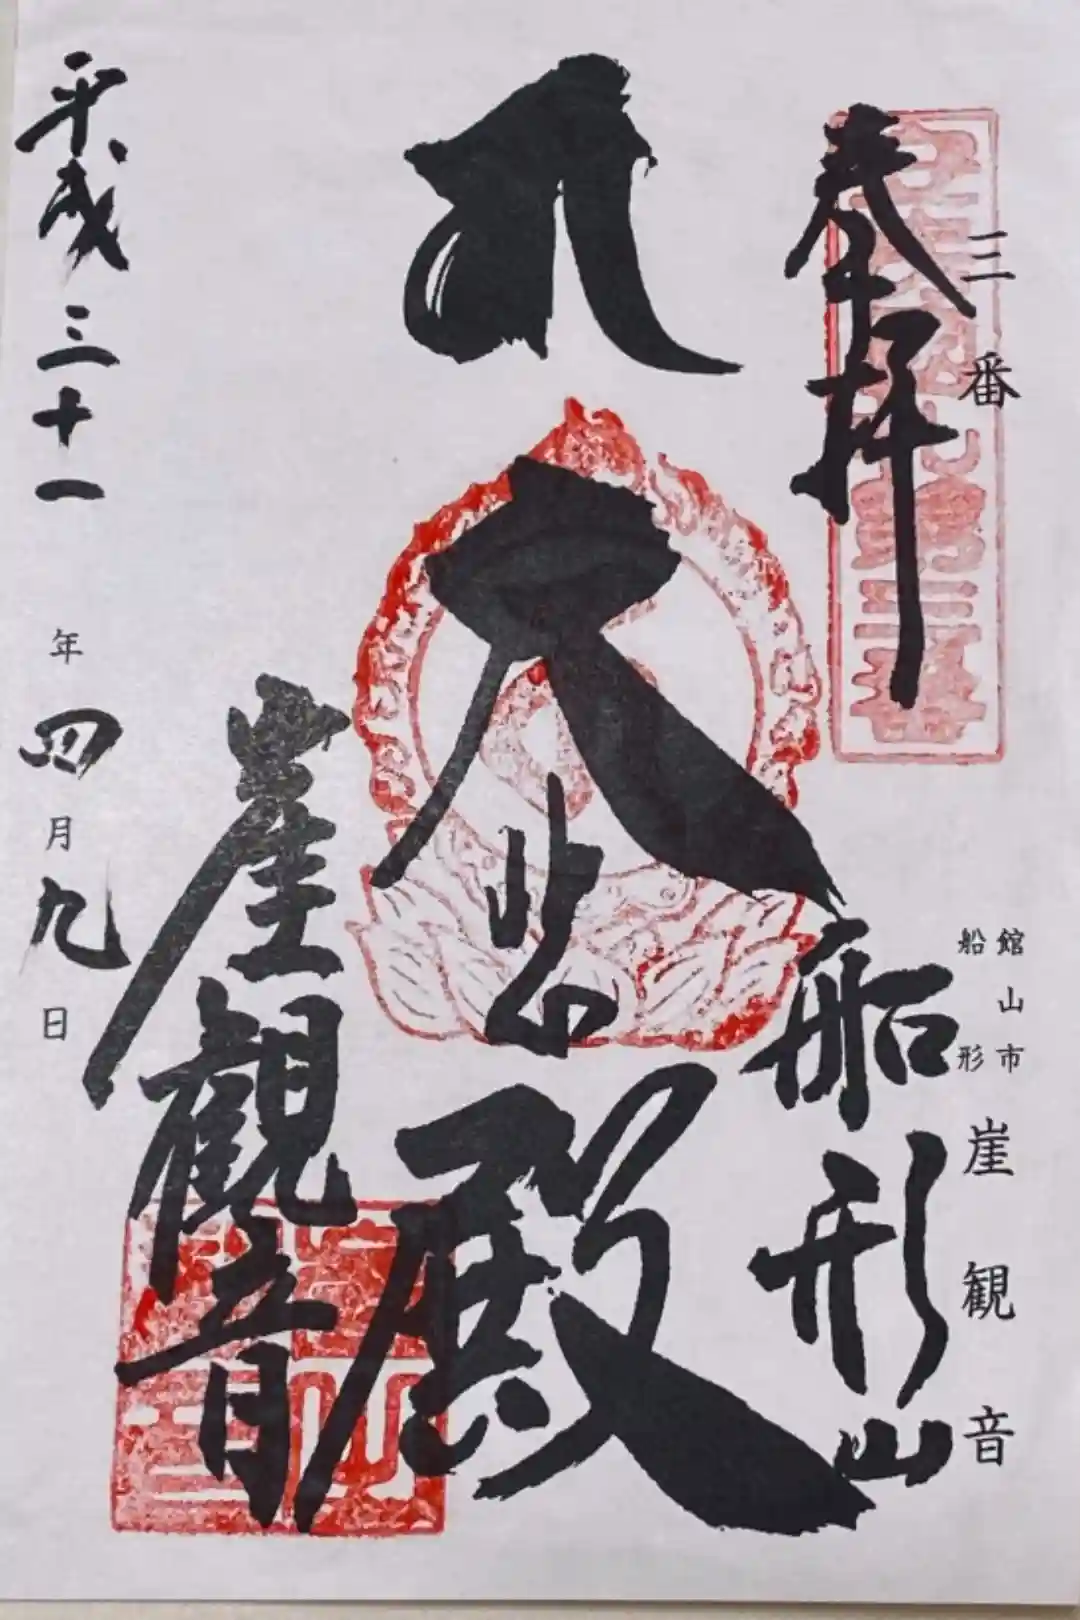 三番
館山市
船形
崖観音
奉拝
船形山
大悲殿
崖觀音
平成三十一年四月九日